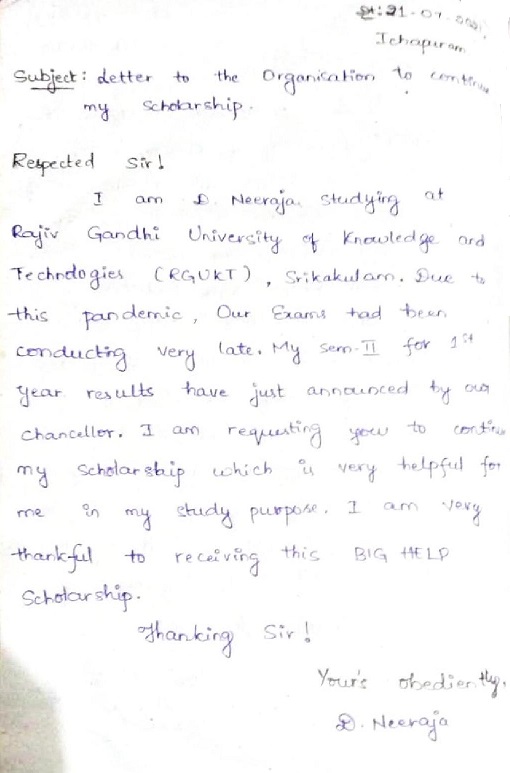 Dt: 21-07-2021,
Ichapuram
Subject: Letter to the Organisation to continue
my Scholarship.
Respected Sir!
I am D. Neeraja studying at
Rajiv Gandhi University of Knowledge and
Technologies (RGUKT), Srikakulam. Due to
this pandemic, Our Exams had been
conducting very late. My sem-II for 1st
year results have just announced by our
chancellor. I am requesting you to continue
my Scholarship which is very helpful for
me in my study purpose. I am very
thankful to receiving this BIG HELP
Scholarship.
Thanking Sir!
Your's obediently,
D. Neeraja